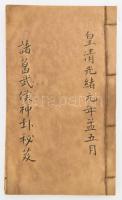 皇清光緒元年孟五月
諸葛武侯神卦秘笈